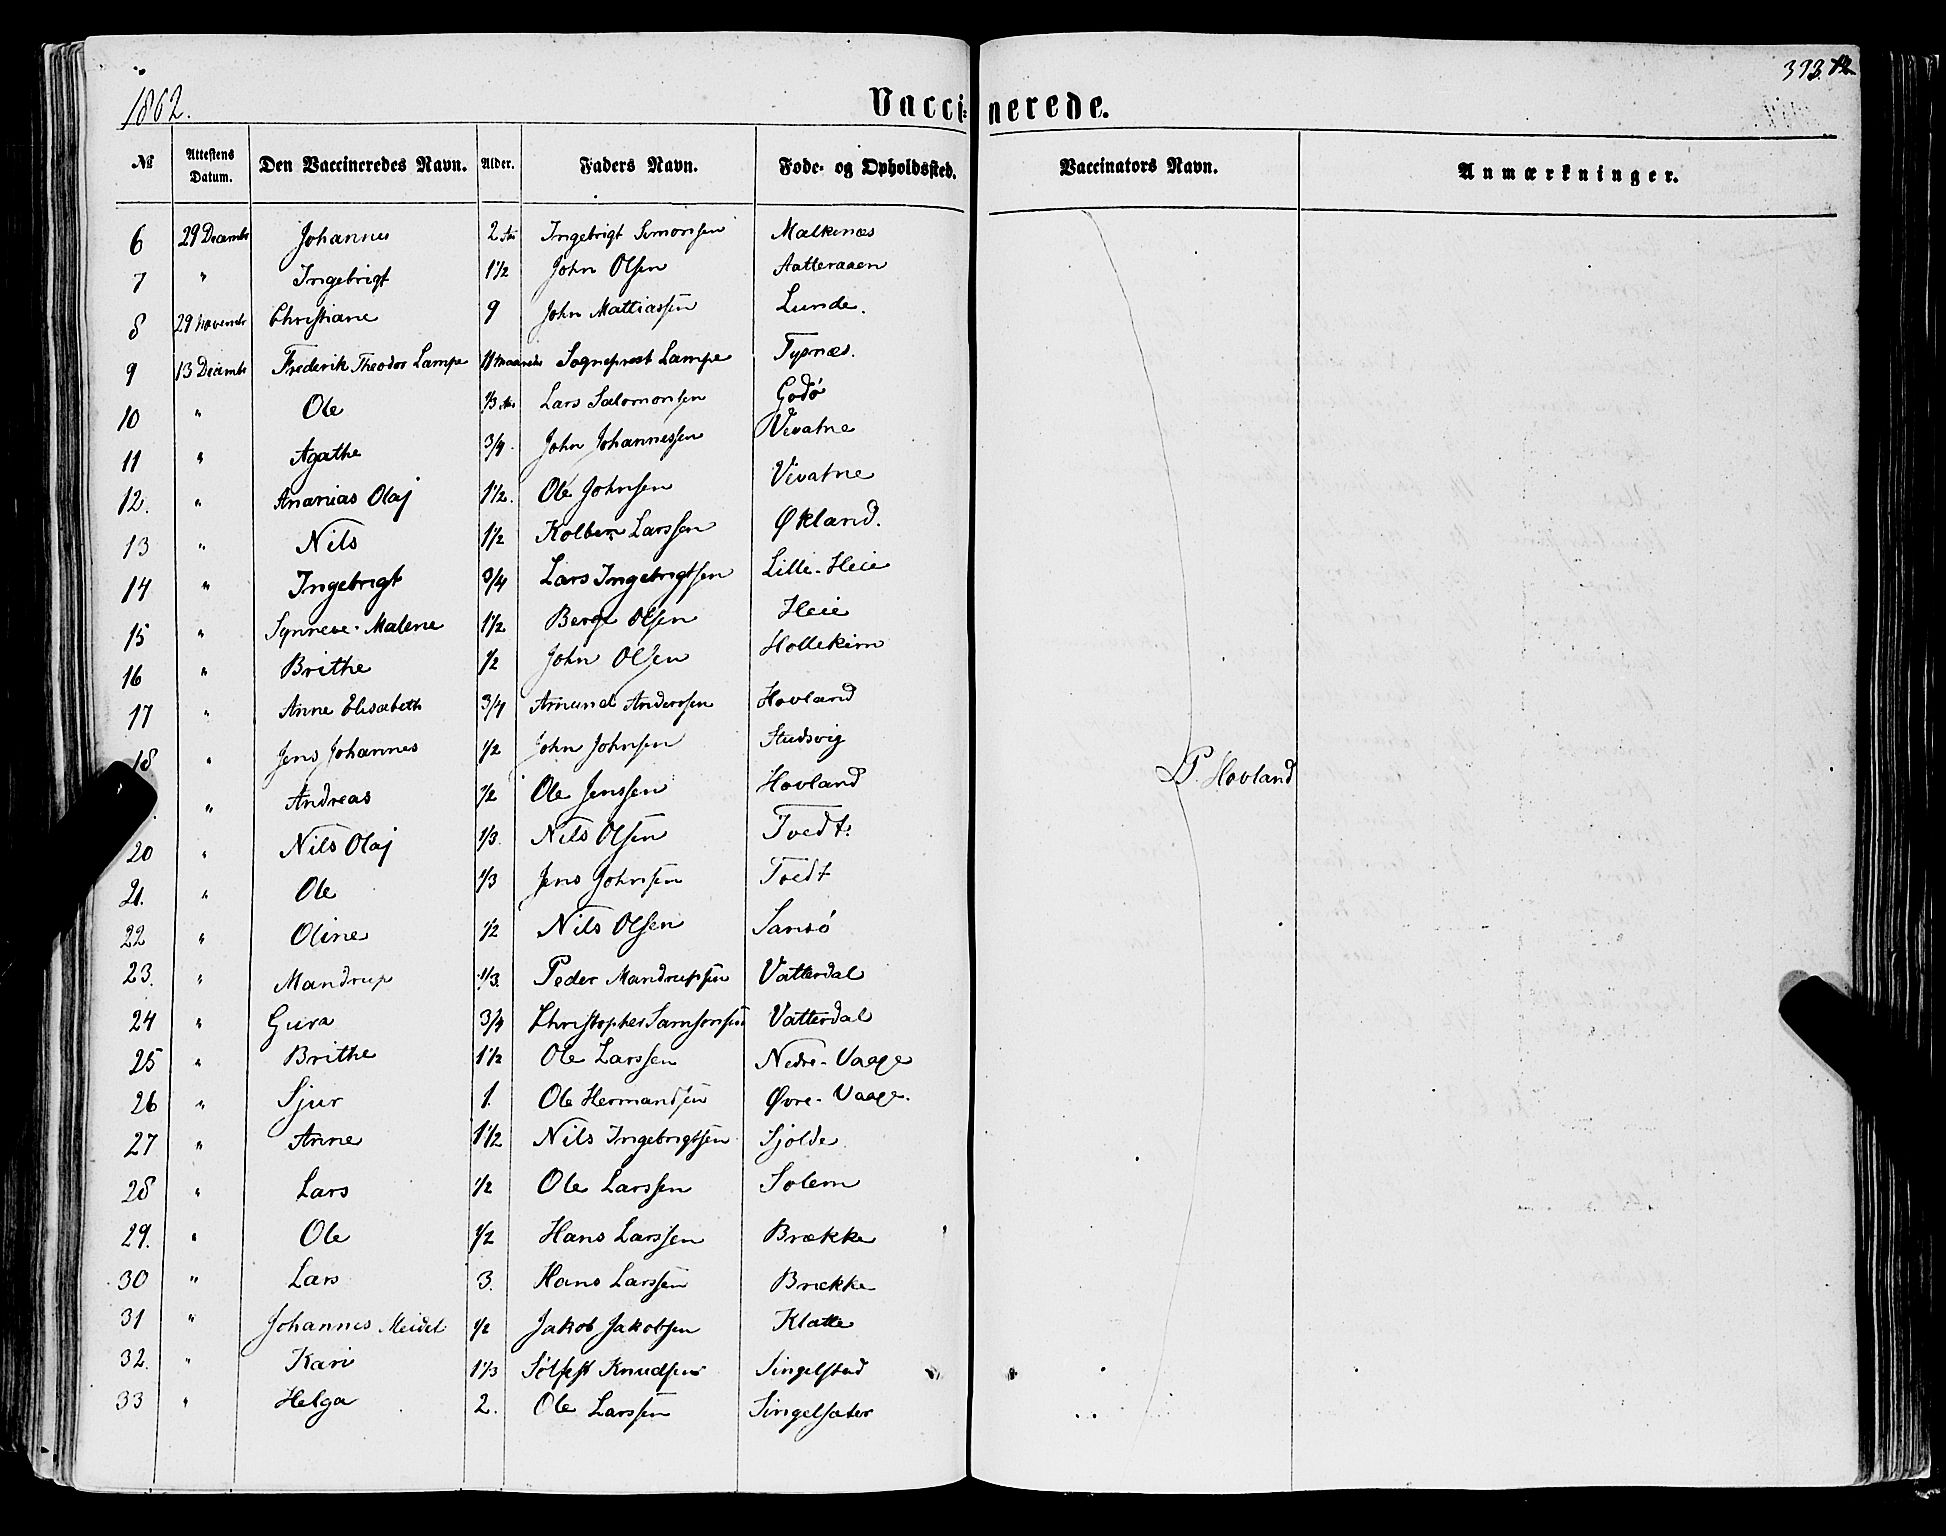 393.
1862.
Vaccinerede.
№ Attestens Datum. Den Vaccineredes Navn. Alder. Faders Navn. Føde- og Opholdssted. Vaccinators Navn. Anmærkninger.
6 29 Decembr Johannes 2 Ingebrigt Simonsen Malkenæs
7 " Ingebrigt 1½ John Olsen Aatteraaen
8 29 Novembr Christiane 9 John Mattiassen Lunde.
9 13 Decembr Frederik Theodor Lampe 11 Maaneder Sogneprest Lampe Tysnæs.
10 " Ole 1/3 Lars Salomonsen Godø
11 " Agathe 3/4. John Johannessen Vevatne
12. " Ananias Olaj 1½. Ole Johnsen Vevatne
13 " Nils 1½ Kolbern Larssen Økland.
14 " Ingebrigt 3/4 Lars Ingebrigtsen Lille-Heie
15 " Synneve-Malene 1½ Berge Olsen Heie
16 " Brithe ½ John Olsen Hollekim
17 " Anne Elisabeth 3/4 Amund Anderssen Hovland
18 " Jens Johannes ½ John Johnsen Studsvig
" Andreas ½ Ole Jenssen Hovland
20 " Nils Olaj 1/3. Nils Olsen Tvedt.
21. " Ole 1/3 Jens Johnsen Tvedt
22 " Oline ½ Nils Olsen Sansø
23. " Mandrup 1/3. Peder Mandrupsen Vatterdal
24 " Gura 3/4 Christopher Samsonsen Vatterdal
25 " Brithe 1½ Ole Larssen Nedre-Vaage
26 " Sjur 1. Ole Hermandsen Øvre-Vaage.
27 " Anne 1½ Nils Ingebrigtsen Sjolde
28 " Lars ½ Ole Larssen Solem
29. " Ole ½ Hans Larssen Brække
30 " Lars 3. Hans Larssen Brække
31 " Johannes Meidel ½ Jakob Jakobsen Klatte
32. " Kari 1 1/3 Sölfest Knudsen Singelstad
33 " Helga 2. Ole Larssen Singelsæter
P. Hovland